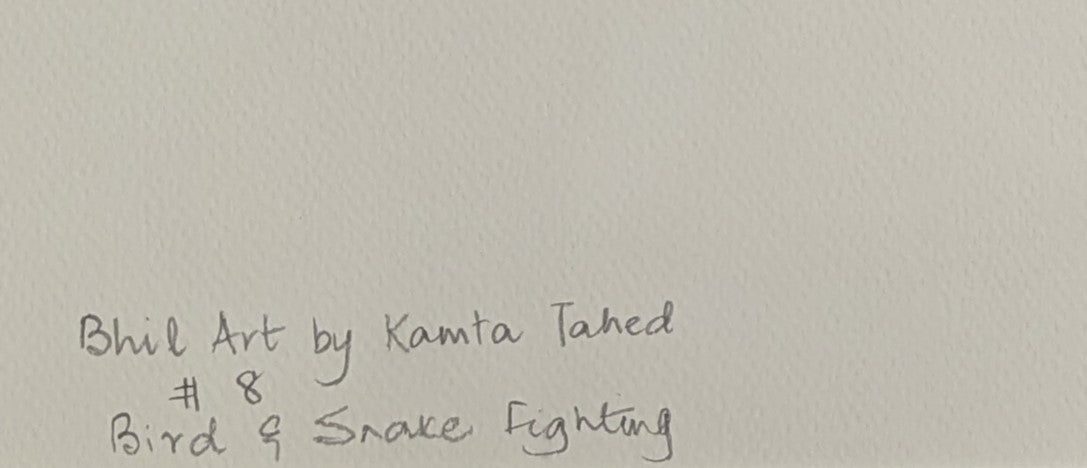 Bhil Art by Kamta Tahed
# 8
Bird & Snake Fighting